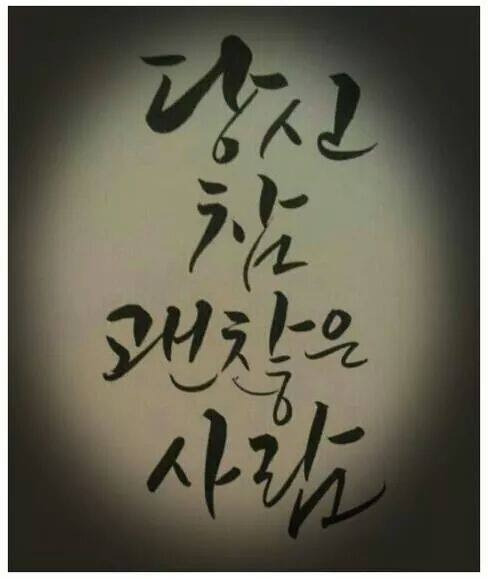 당신
참
괜찮은
사람